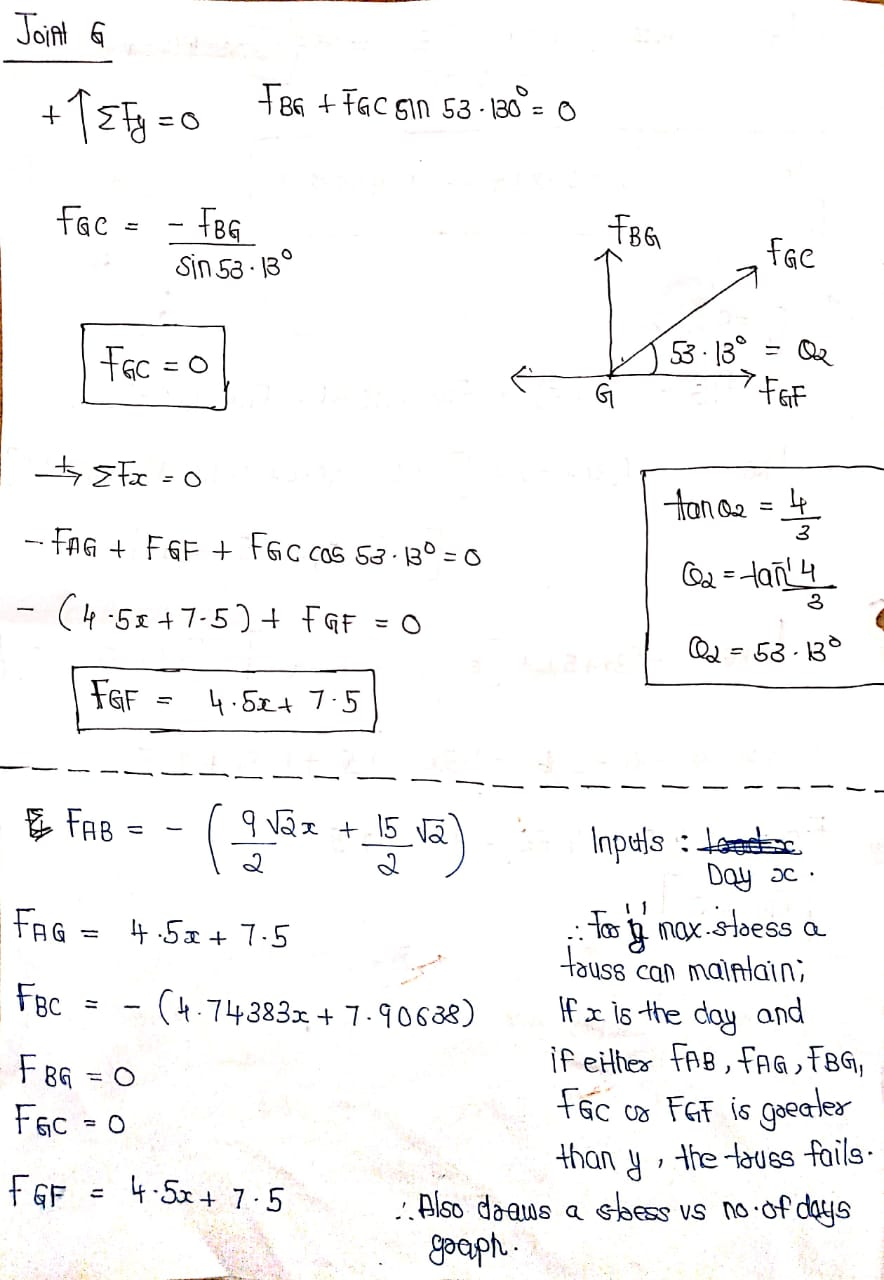 Joint G
+↑ΣFy = 0    FBG + FGC sin 53.130° = 0
FGC = - FBG / sin 53.13°
FGC = 0
FBG
FGC
53.13° = θ2
G
FGF
+→ ΣFx = 0
- FAG + FGF + FGC cos 53.13° = 0
- (4.5x + 7.5) + FGF = 0
FGF = 4.5x + 7.5
tan θ2 = 4/3
θ2 = tan⁻¹ 4/3
θ2 = 53.13°
FAB = - (9√2x/2 + 15√2/2)
FAG = 4.5x + 7.5
FBC = - (4.74383x + 7.90638)
FBG = 0
FGC = 0
FGF = 4.5x + 7.5
Inputs :
Day x.
∴ For 'y' max. stress a
truss can maintain;
If x is the day and
if either FAB, FAG, FBG,
FGC or FGF is greater
than y, the truss fails.
∴ Also draws a stress vs no. of days
graph.